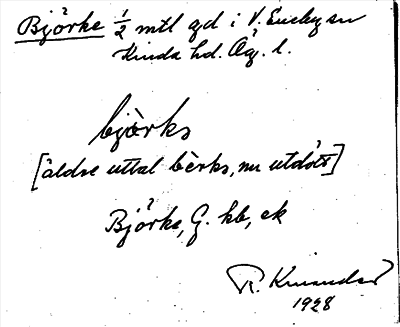 Björke ½ mtl gd i V. Eneby sn
Kinda hd. Ög. l.
bjò̀rks
[äldre uttal bèrks, nu utdött]
Björke, G. kb, ek
R. Kinander
1928